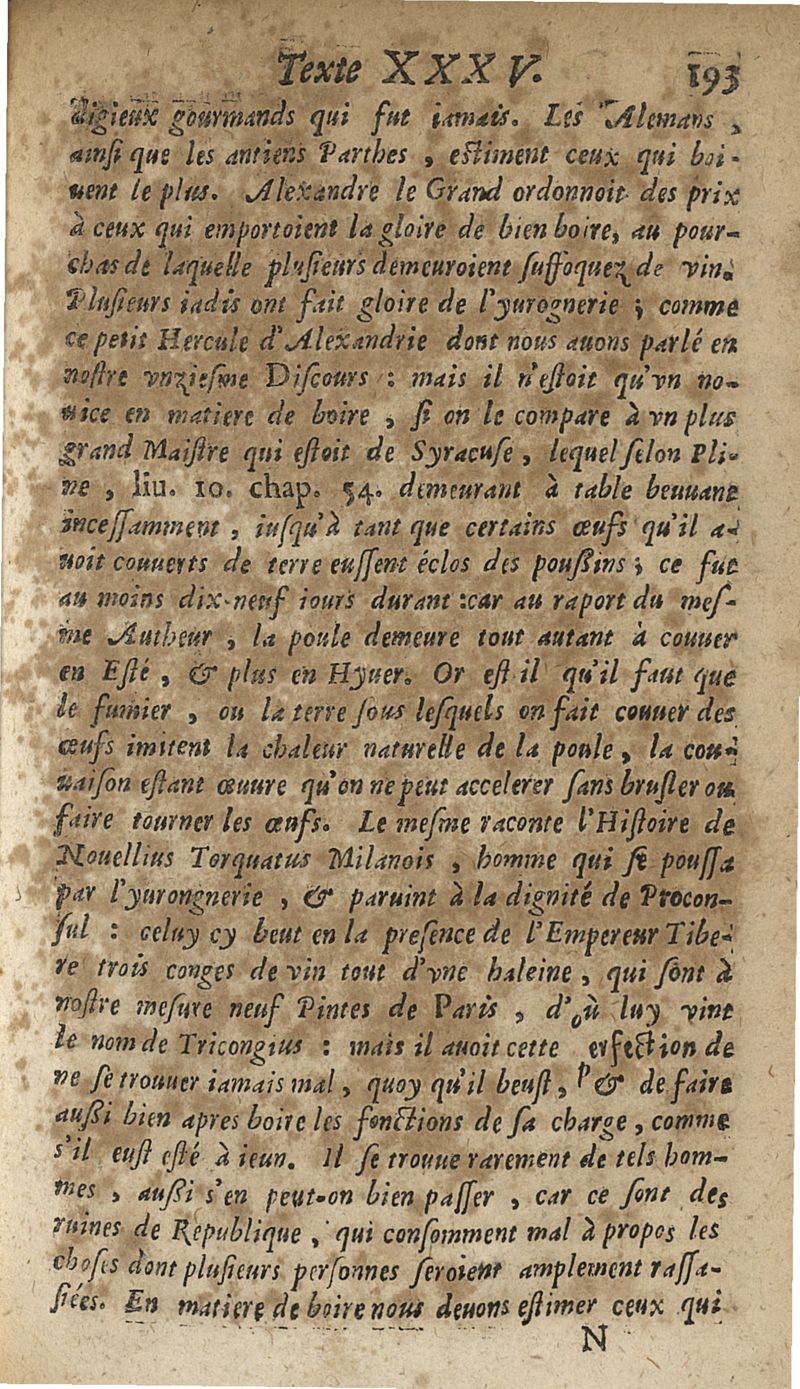 Texte XXXV. 193
digieux gourmands qui fut iamais. Les Alemans,
ainsi que les antiens Parthes, estiment ceux qui boi-
uent le plus. Alexandre le Grand ordonnoit des prix
à ceux qui emportoient la gloire de bien boire, au pour-
chas de laquelle plusieurs demeuroient suffoquez de vin.
Plusieurs iadis ont fait gloire de l'yurognerie ; comme
ce petit Hercule d'Alexandrie dont nous auons parlé en
nostre vnziesme Discours : mais il n'estoit qu'vn no-
uice en matiere de boire, si on le compare à vn plus
grand Maistre qui estoit de Syracuse, lequel selon Pli-
ne, liu. 10. chap. 54. demeurant à table beuuant
incessamment, iusqu'à tant que certains œufs qu'il a-
uoit couuerts de terre eussent éclos des poussins ; ce fut
au moins dix-neuf iours durant :car au raport du mes-
me Autheur, la poule demeure tout autant à couuer
en Esté, & plus en Hyuer. Or est il qu'il faut que
le fumier, ou la terre sous lesquels on fait couuer des
œufs imitent la chaleur naturelle de la poule, la cou-
uaison estant œuure qu'on ne peut accelerer sans brusler ou
faire tourner les œufs. Le mesme raconte l'Histoire de
Nouellius Torquatus Milanois, homme qui se poussa
par l'yurongnerie, & paruint à la dignité de Procon-
sul : celuy cy beut en la presence de l'Empereur Tibe-
re trois conges de vin tout d'vne haleine, qui sont à
nostre mesure neuf Pintes de Paris, d'où luy vint
le nom de Tricongius : mais il auoit cette erfection de
ne se trouuer iamais mal, quoy qu'il beust, p & de faire
aussi bien apres boire les fonctions de sa charge, comme
s'il eust esté à ieun. Il se trouue rarement de tels hom-
mes, aussi s'en peut-on bien passer, car ce sont des
ruines de Republique, qui consomment mal à propos les
choses dont plusieurs personnes seroient amplement rassa-
siées. En matiere de boire nous deuons estimer ceux qui
N